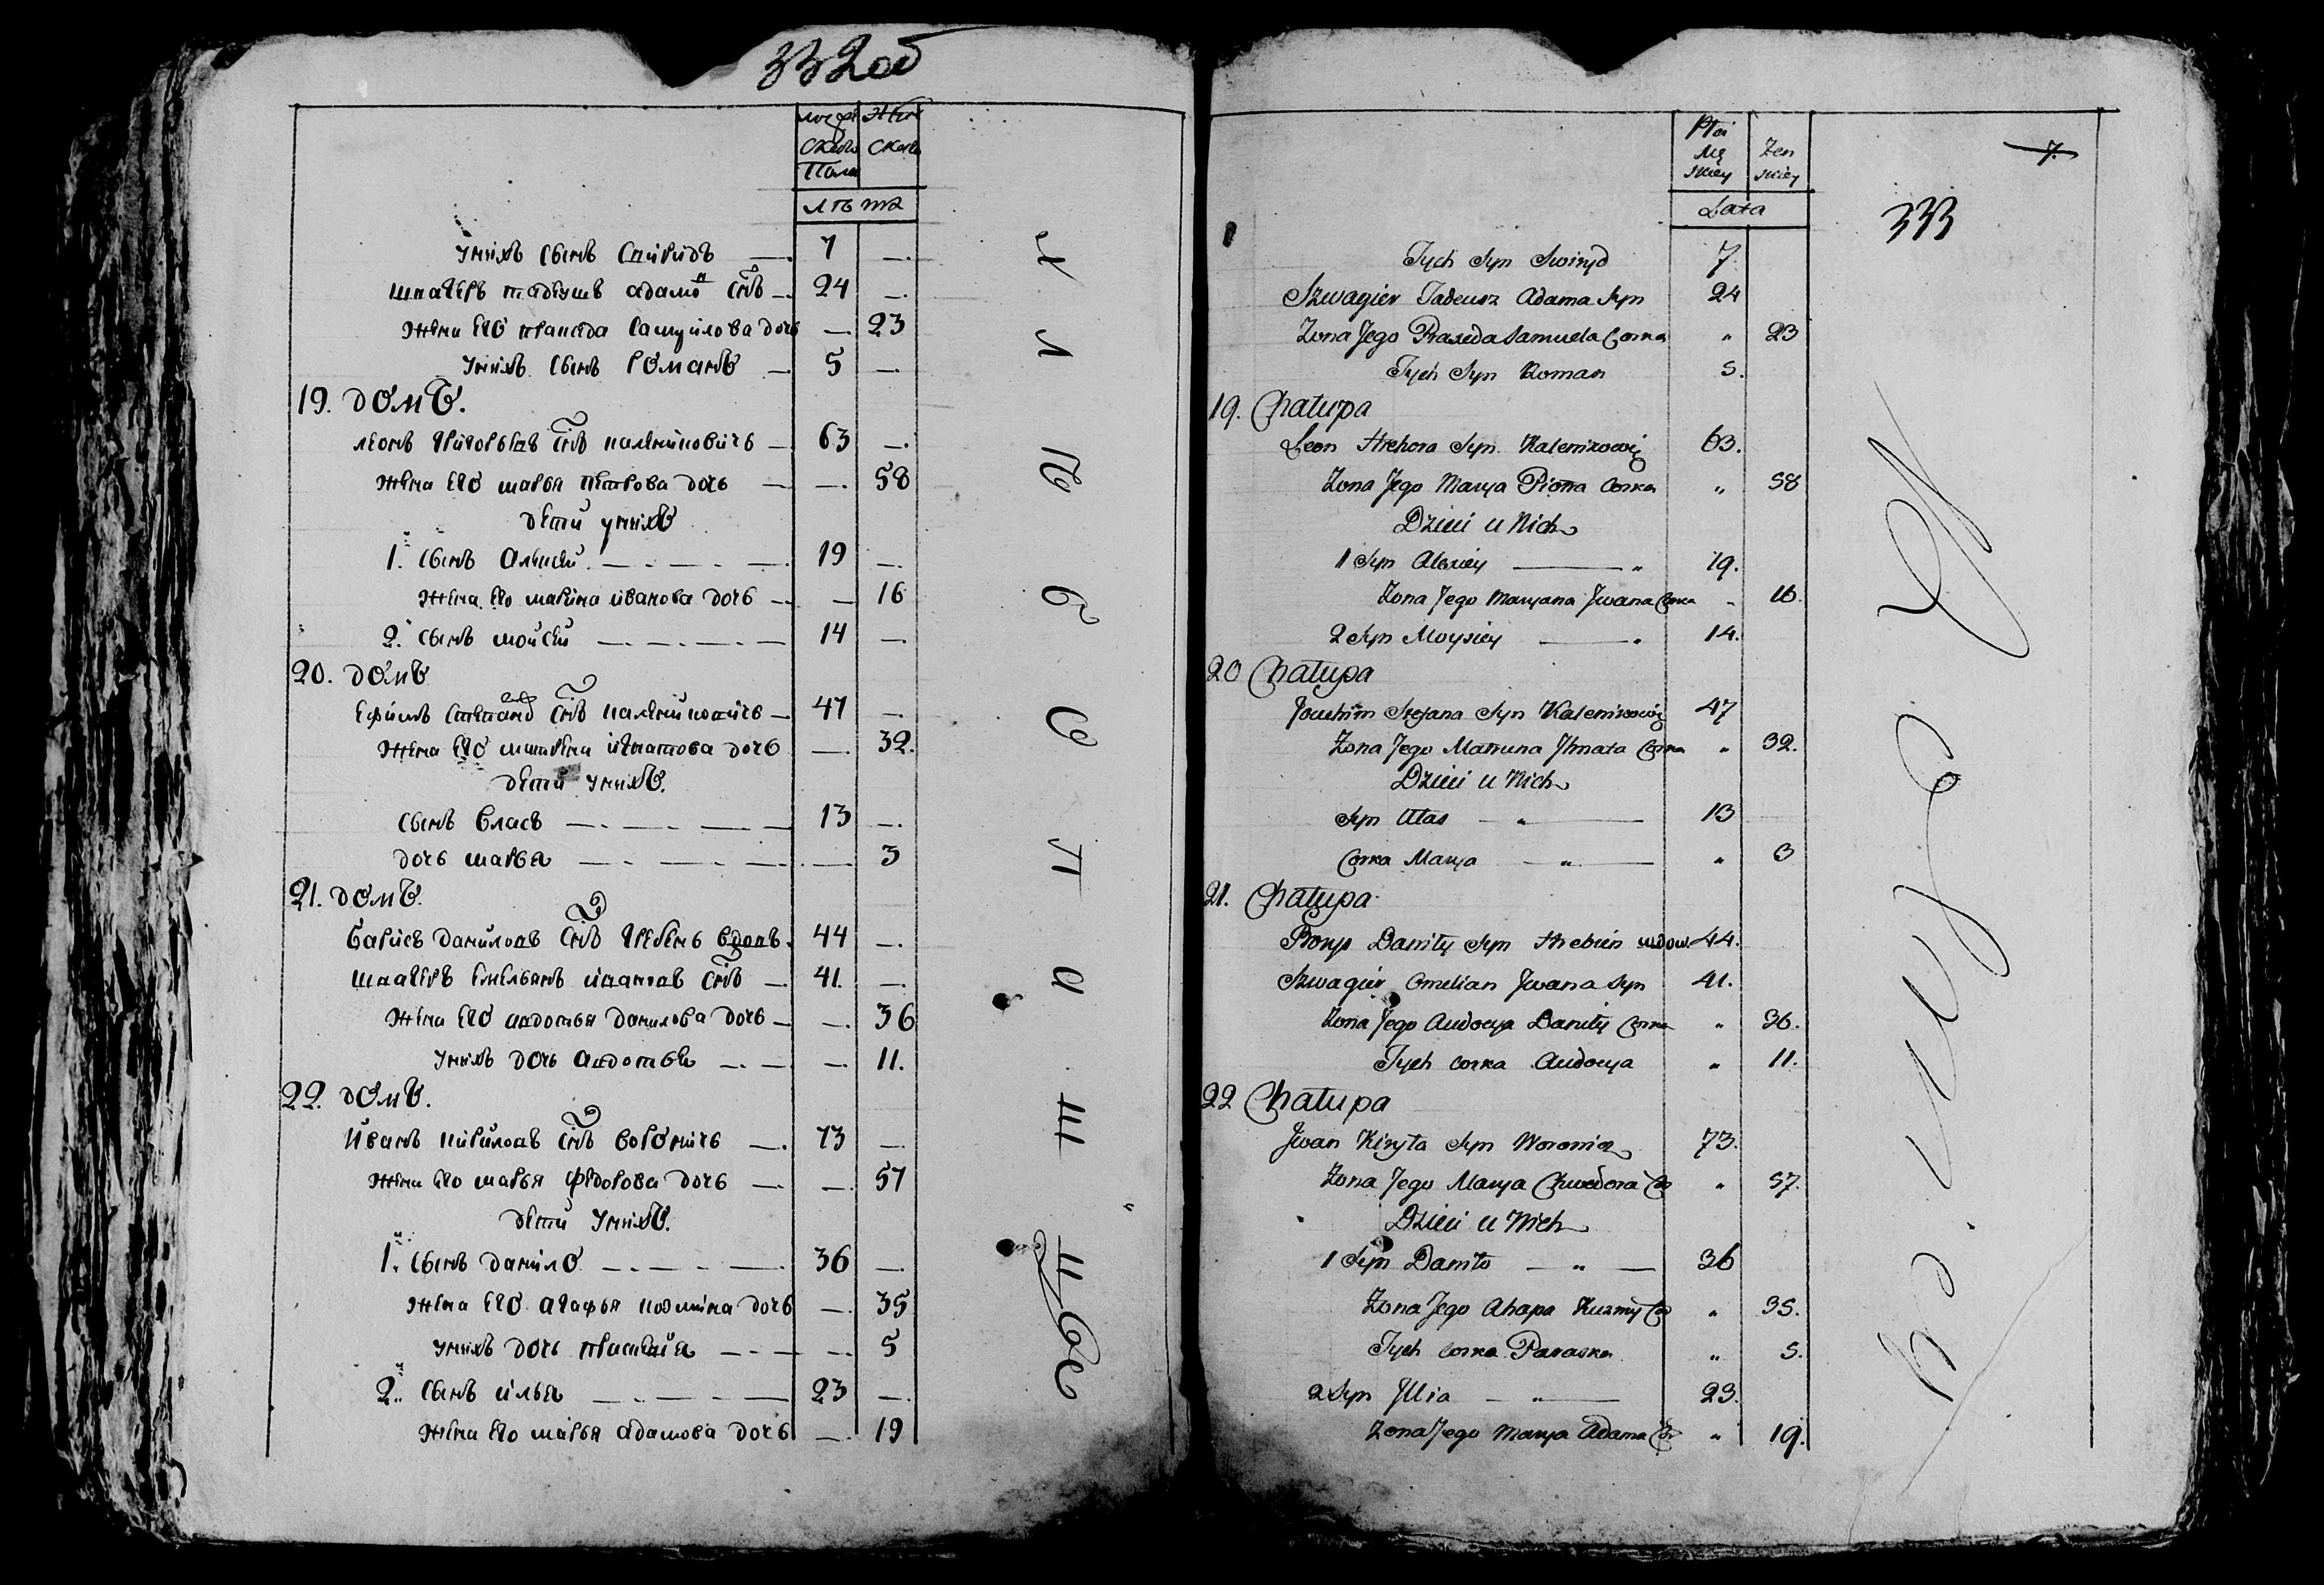 332об
мужескаго Пола
женскаго
лѣта
у нихъ сынъ Спиридъ — 7 —
швагеръ тадеушъ адамовъ снъ — 24 —
жена его праседа самуилова дочь — 23
у нихъ сынъ романъ — 5 —
19. домъ.
леонъ григорьевъ снъ калениковичъ — 63 —
жена его марья петрова дочь — — 58
дети у нихъ
1. сынъ алексей — 19 —
жена его марина иванова дочь — — 16
2. сынъ мойсей — 14 —
20. домъ
ефимъ степановъ снъ каленикович — 47 —
жена его матрена игнатова дочь — 32.
дети у нихъ.
сынъ власъ — 13 —
дочь марья — — 3
21. домъ.
барисъ даниловъ снъ гребень вдовъ. 44 —
швагеръ емельянъ ивановъ снъ — 41. —
жена его авдотья данилова дочь — — 36
у нихъ дочь авдотья — — 11.
22. домъ.
Иванъ кириловъ снъ вороничъ — 73 —
жена его марья федорова дочь — — 57
дети у нихъ.
1. сынъ данило — 36 —
жена его агафья козмина дочь — 35
у нихъ дочь праскевия — — 5
2. сынъ илья — 23 —
жена его марья адамова дочь — 19
Płci Męskiey
Żenskiey
Lata
7.
333
Tych Syn Swiryd 7.
Szwagier Tadeusz Adama Syn 24
Zona Jego Praxeda Samuela Corka " 23
Tych Syn Roman 5.
19. Chałupa
Leon Hrehora Syn Kalenikowicz 63.
Zona Jego Marya Piotra Corka " 58
Dzieci u Nich
1 Syn Alexiey — " 19.
Zona Jego Maryana Jwana Corka " 16.
2 Syn Moysiey — " 14.
20 Chałupa
Joachim Stefana Syn Kalenikowicz 47
Zona Jego Matruna Jhnata Corka " 32.
Dzieci u Nich
Syn Ułas — " — 13
Corka Marya — " — " 3
21. Chałupa
Borys Daniły Syn Hrebień wdow. 44.
Szwagier Omelian Jwana Syn 41.
Zona Jego Audocya Daniły Corka " 36.
Tych corka Audocya " 11.
22 Chałupa
Jwan Kiryła Syn Woronicz 73.
Zona Jego Marya Chwedora Cor " 57.
Dzieci u Nich
1 Syn Daniło — " — 36
Zona Jego Ahapa Kuzmy Cor " 35.
Tych corka Paraska " 5.
2 Syn Jllia — " — 23.
Zona Jego Marya Adama Cor " 19.